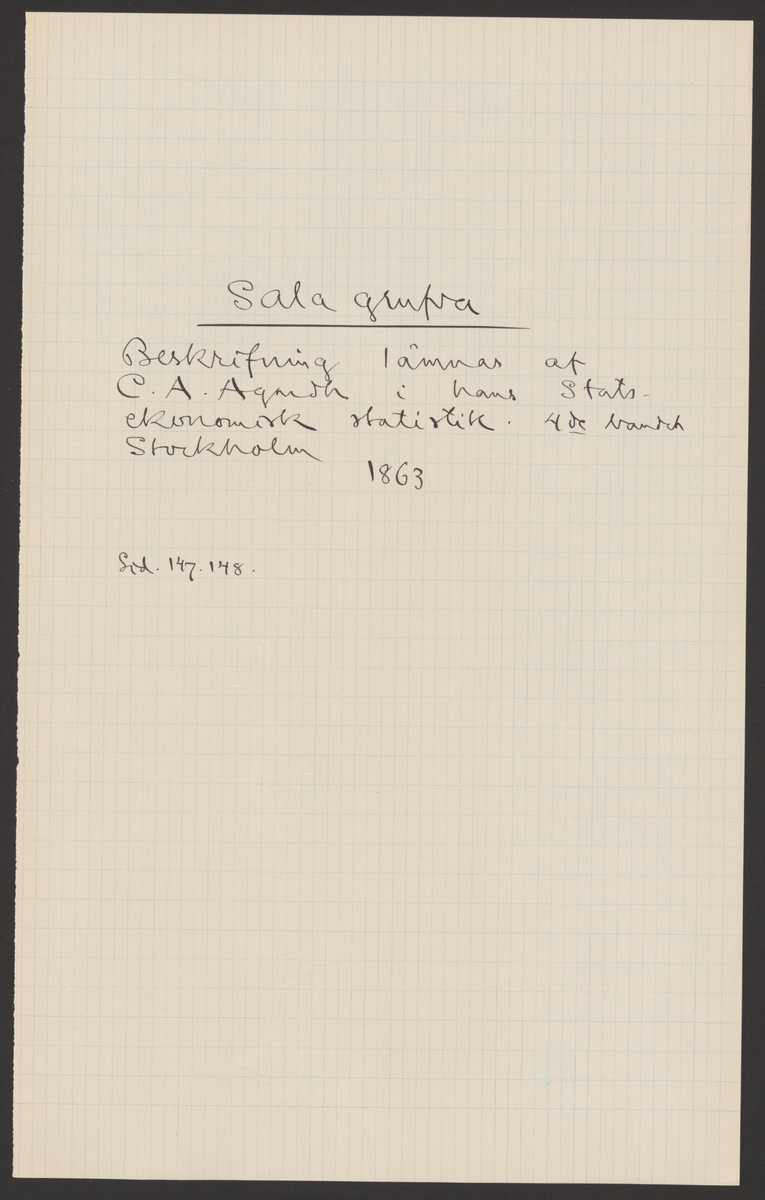 Sala grufva
Beskrifning lämnas af
C. A. Agardh i hans Stats-
ekonomisk statistik. 4de bandet
Stockholm
1863
Sid. 147. 148.